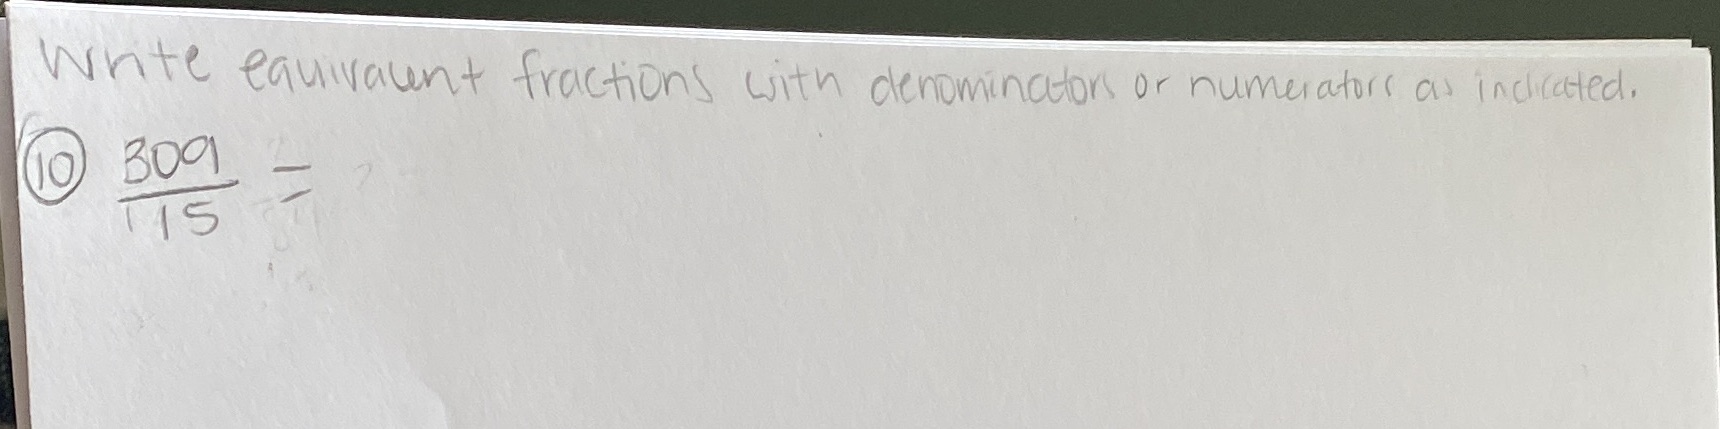 Write equivalent fractions with denominators or numerators as indicated.
10 309/115 =